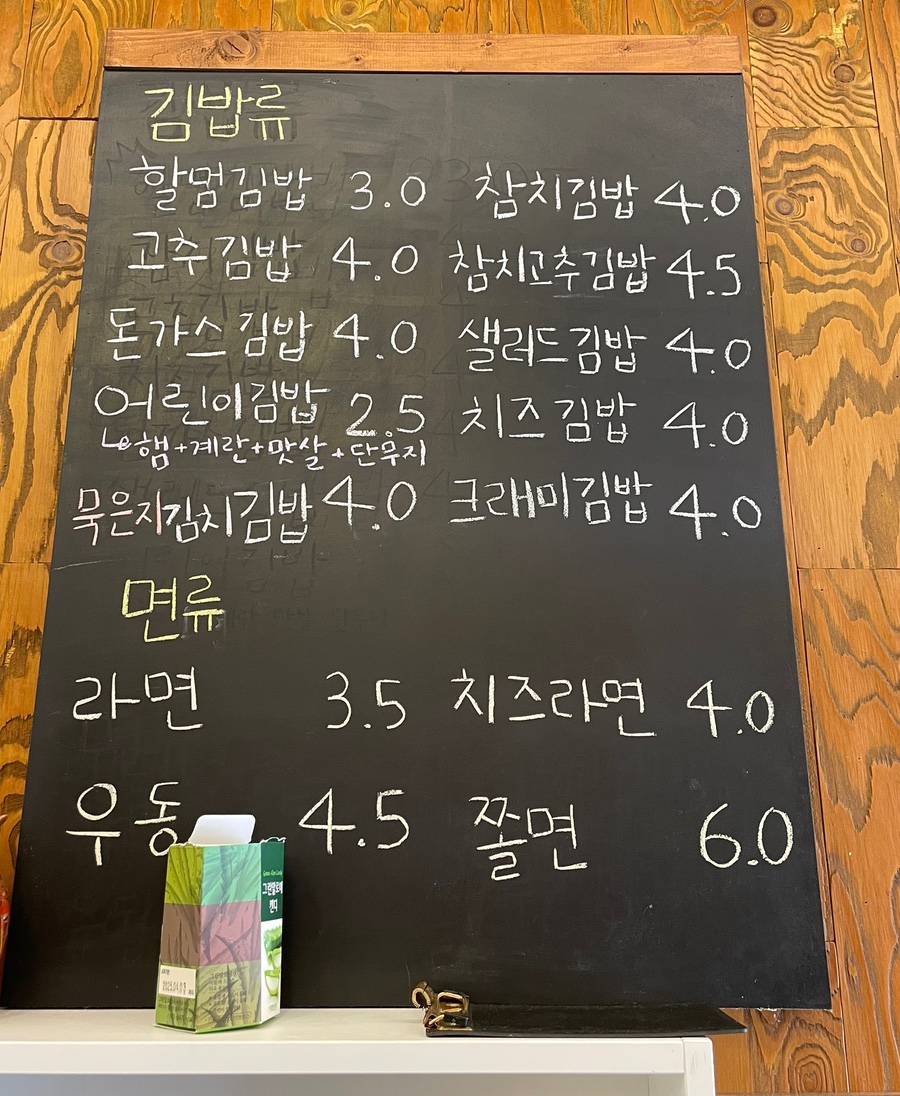 김밥류
할멈김밥 3.0 참치김밥 4.0
고추김밥 4.0 참치고추김밥 4.5
돈가스김밥 4.0 샐러드김밥 4.0
어린이김밥 2.5 치즈김밥 4.0
햄+계란+맛살+단무지
묵은지김치김밥 4.0 크래미김밥 4.0
면류
라면 3.5 치즈라면 4.0
우동 4.5 쫄면 6.0
그린알로에
캔디
2025.04.03